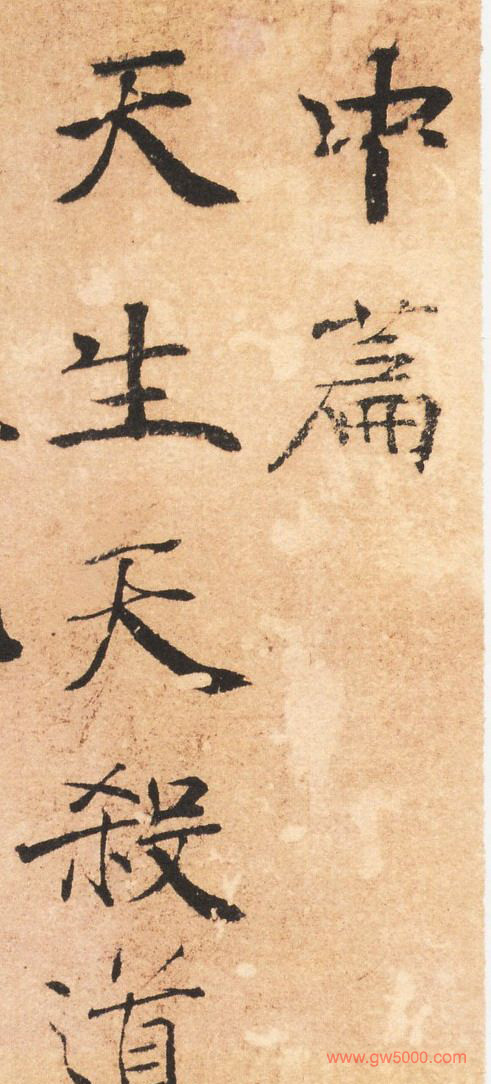 中篇
天生天殺道
www.gw5000.com